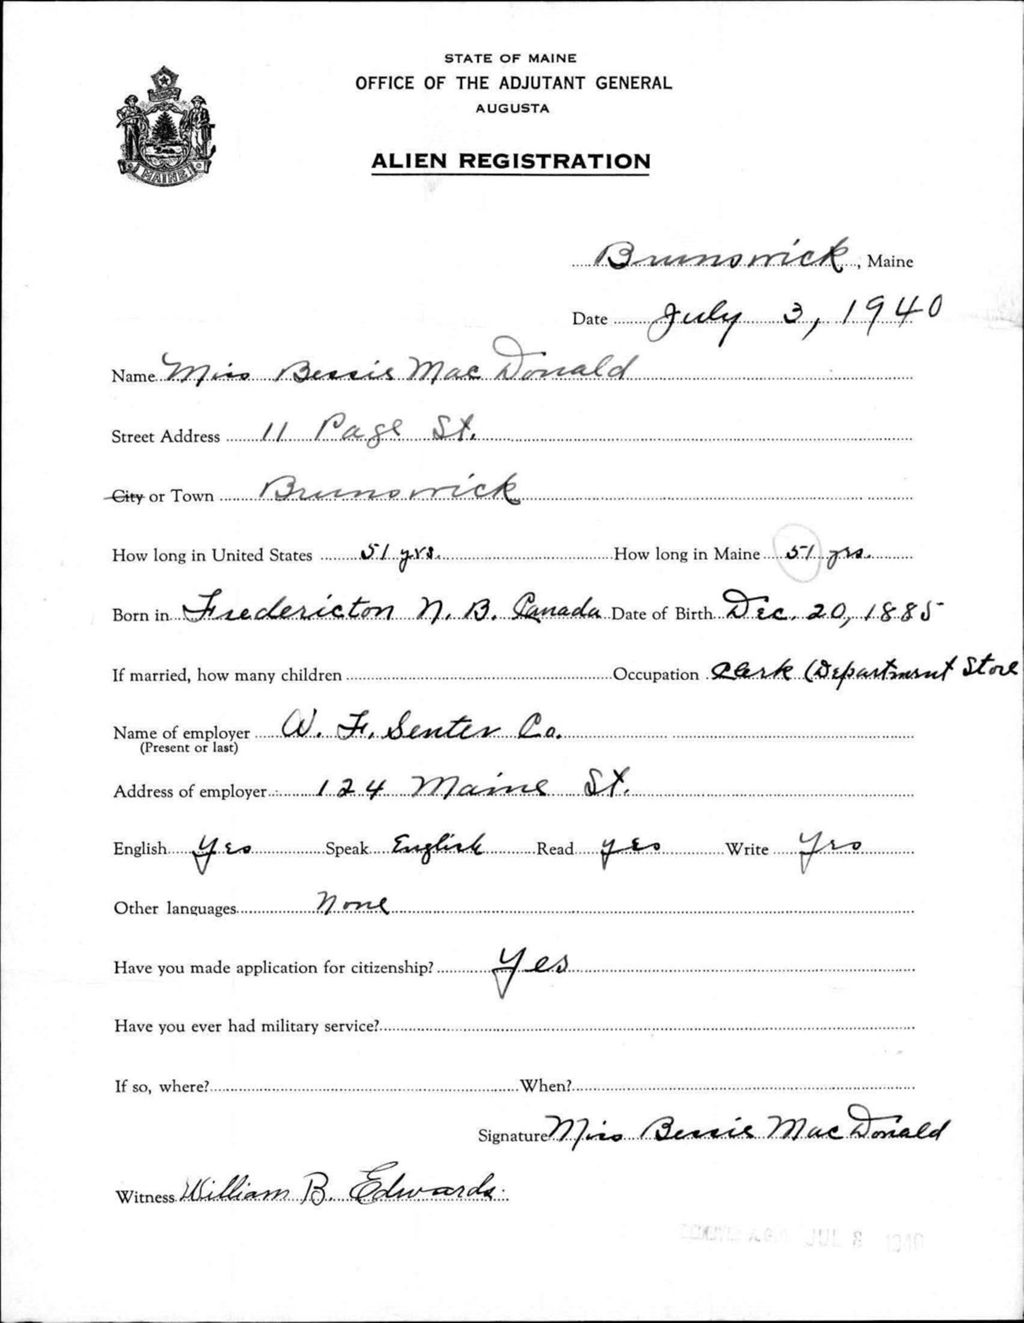 STATE OF MAINE
OFFICE OF THE ADJUTANT GENERAL
AUGUSTA
ALIEN REGISTRATION
MAINE
Brunswick, Maine
Date July 3, 1940
Name Miss Bessie MacDonald
Street Address 11 Page St.
City or Town Brunswick
How long in United States 51 yrs. How long in Maine 51 yrs.
Born in Fredericton N. B. Canada Date of Birth Dec. 20, 1885
If married, how many children Occupation Clerk (Department Store
Name of employer W. F. Senter Co.
(Present or last)
Address of employer 124 Maine St.
English Yes Speak English Read yes Write Yes
Other languages None
Have you made application for citizenship? Yes
Have you ever had military service?
If so, where? When?
Signature Miss Bessie MacDonald
Witness William B. Edwards
A.G.O. JUL 8 1940